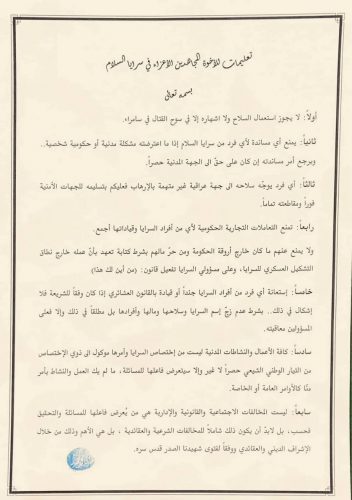 تعليمات للأخوة المجاهدين الأعزاء في سرايا السلام
بسمه تعالى
أولاً: لا يجوز استعمال السلاح ولا اشهاره إلا في سوح القتال في سامراء.
ثانياً: يمنع أي مساندة لأي فرد من سرايا السلام إذا ما اعترضته مشكلة مدنية أو حكومية شخصية..
ويرجع أمر مساندته إن كان على حقّ الى الجهة المدنية حصراً.
ثالثاً: أي فرد يوجّه سلاحه الى جهة عراقية غير متهمة بالإرهاب فعليكم بتسليمه للجهات الأمنية
فوراً ومقاطعته تماماً.
رابعاً: تمنع التعاملات التجارية الحكومية لأي من أفراد السرايا وقياداتها أجمع.
ولا يمنع عنهم ما كان خارج أروقة الحكومة ومن حرّ مالهم بشرط كتابة تعهد بأنّ عمله خارج نطاق
التشكيل العسكري للسرايا، وعلى مسؤولي السرايا تفعيل قانون: (من أين لك هذا)
خامساً: إستعانة أي فرد من أفراد السرايا جنداً أو قيادة بالقانون العشائري إذا كان وفقاً للشريعة فلا
إشكال في ذلك.. بشرط عدم زجّ إسم السرايا وسلاحها ومالها وأفرادها بل مطلقاً في ذلك وإلا فعلى
المسؤولين معاقبته.
سادسا: كافة الأعمال والنشاطات المدنية ليست من إختصاص السرايا وأمرها موكول الى ذوي الإختصاص
من التيار الوطني الشيعي حصراً لا غير وإلا سيتعرض فاعلها للمسائلة، ما لم يك العمل والنشاط بأمر
منّا كالأوامر العامة أو الخاصة.
سابعاً: ليست المخالفات الاجتماعية والقانونية والإدارية هي من يُعرض فاعلها للمسائلة والتحقيق
فحسب، بل لابدّ أن يكون ذلك شاملاً للمخالفات الشرعية والعقائدية ، بل هي الأهم وذلك من خلال
الإشراف الديني والعقائدي ووفقاً لفتوى شهيدنا الصدر قدس سره.